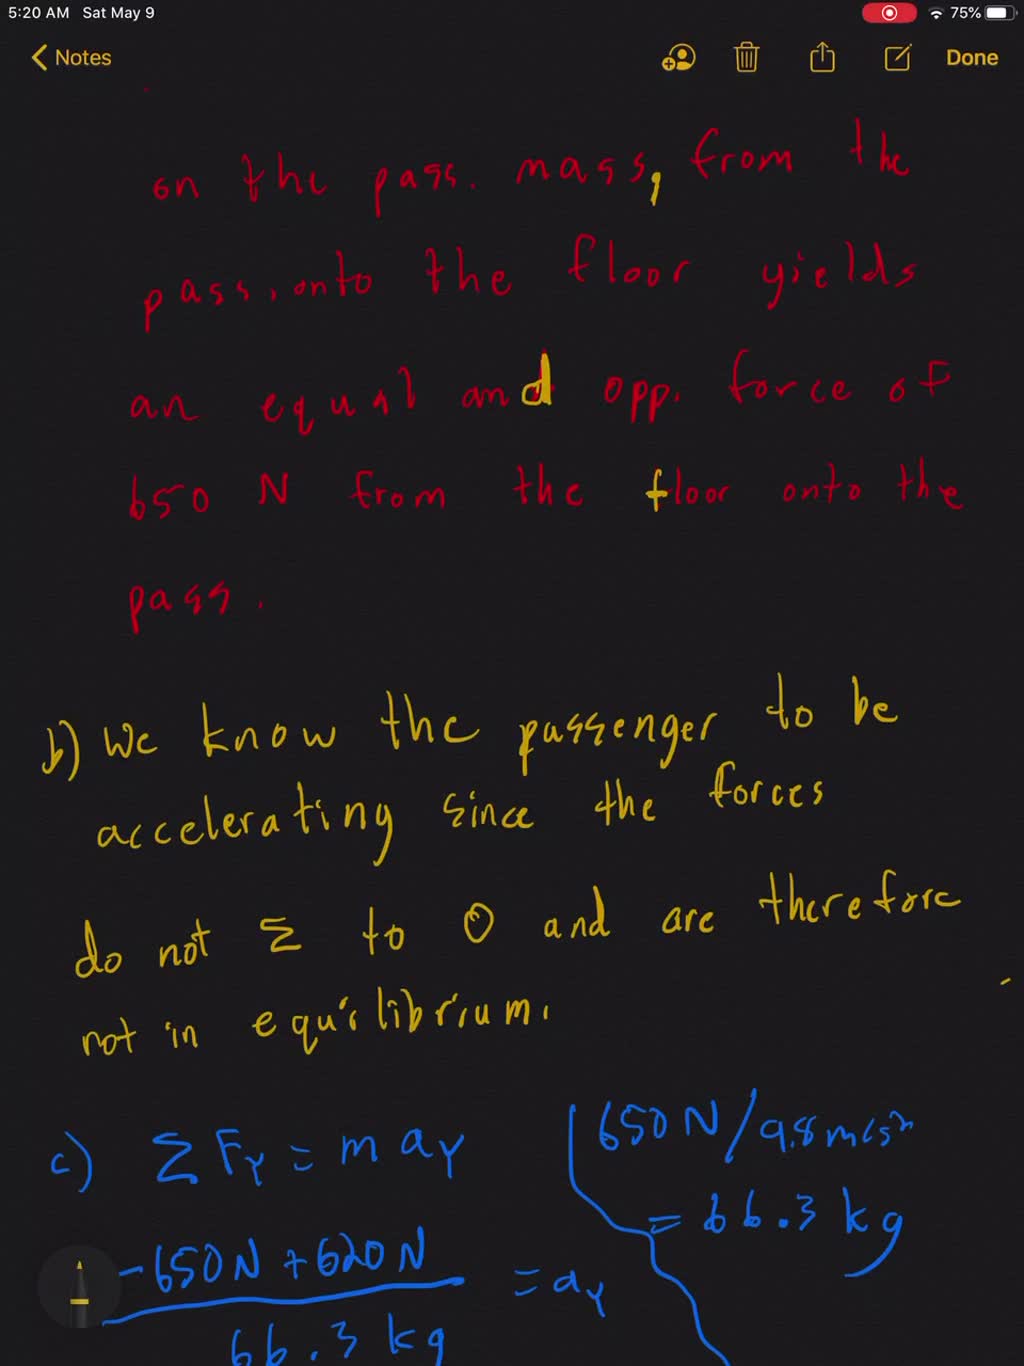 5:20 AM Sat May 9
75%
Notes
Done
on the pass. mass, from the
pass. onto the floor yields
an equal and opp. force of
650 N from the floor onto the
pass.
b) We know the passenger to be
accelerating since the forces
do not Σ to 0 and are therefore
not in equilibrium.
c) Σ Fy = m ay
650 N / 9.8 m/s²
= 66.3 kg
-650 N + 620 N
= ay
66.3 kg